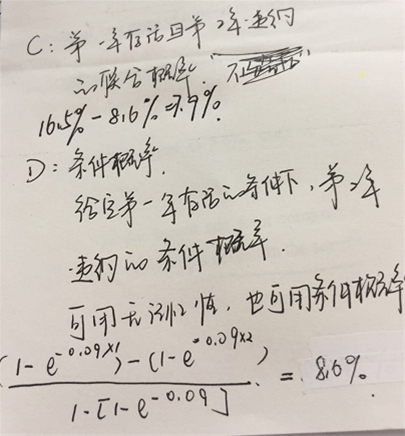 C：第一年存活且第2年违约
的联合概率.
16.5%-8.6%=7.9%.
D：条件概率.
给定第一年存活的条件下，第2年
违约的条件概率.
可用无记忆性值，也可用条件概率
(1-e^{-0.09×1})-(1-e^{-0.09×2})
1-[1-e^{-0.09}]
=8.6%.